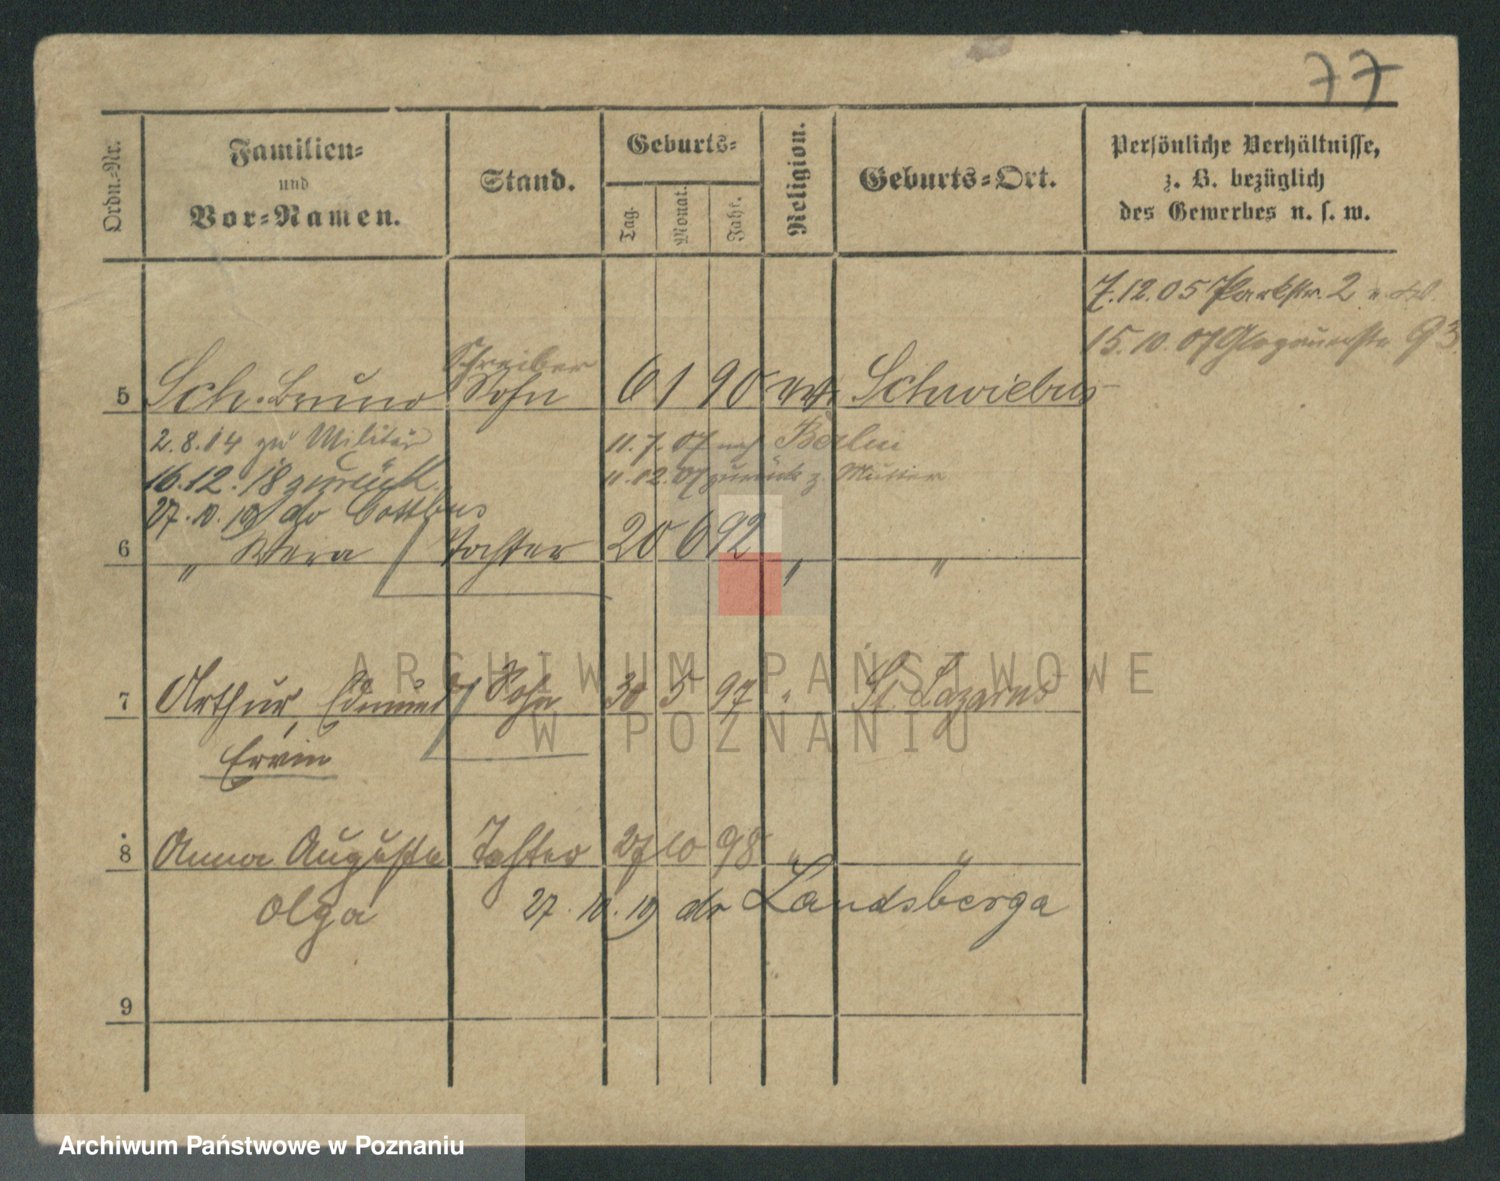 77
Ordn.-Nr.
Familien-
und
Vor-Namen.
Stand.
Geburts-
Tag.
Monat.
Jahr.
Religion.
Geburts-Ort.
Persönliche Verhältnisse,
z. B. bezüglich
des Gewerbes u. s. w.
7.12.05 Parkstr. 2
15.10.07 Glogauerstr. 93
Schreiber
5 Sch. Bruno Sohn 6 1 90 ev. Schwiebus
2.8.14 zu Militär 11.7.07 nach Berlin
16.12.18 zurück 11.12.07 zurück z. Mutter
27.10.19 do Cottbus
6 " Wera Tochter 20 6 92 " "
7 Arthur, Edmund Sohn 30 5 97 " St. Lazarus
Ervin
8 Anna Augusta Tochter 27 10 98 " "
Olga 27.10.19 do Landsberga
9
ARCHIWUM PAŃSTWOWE
W POZNANIU
Archiwum Państwowe w Poznaniu